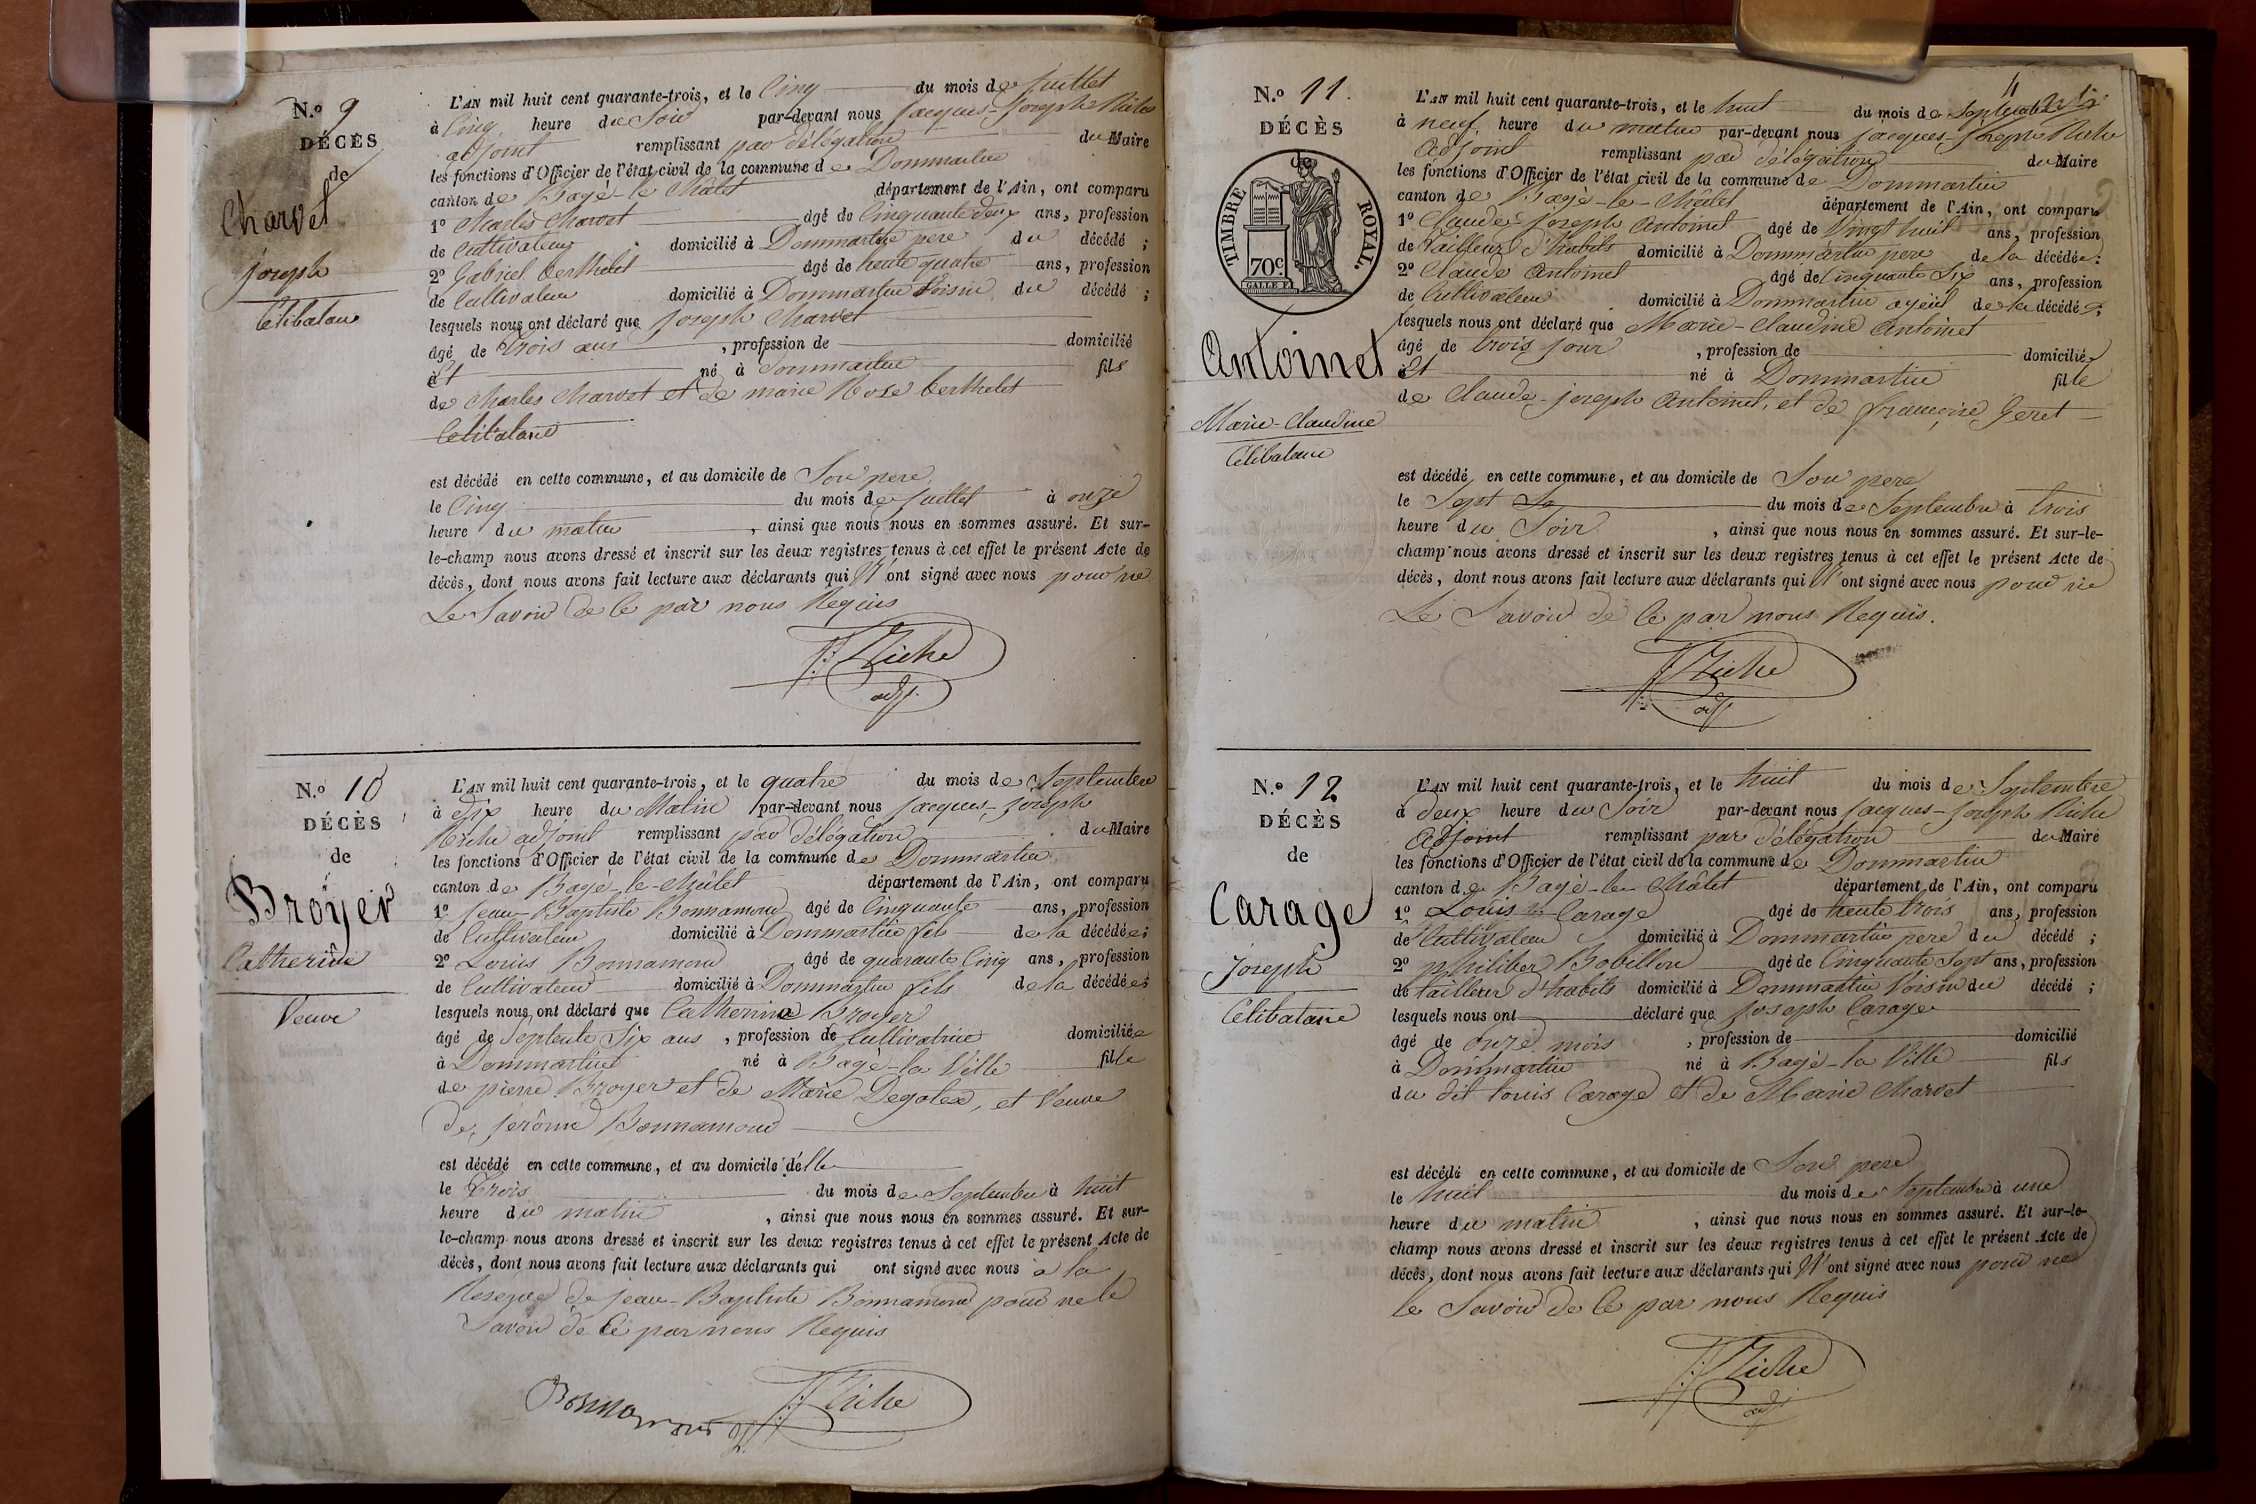 N.o 9
DÉCÈS
de
Charvet
joseph
Célibataire
L'AN mil huit cent quarante-trois, et le Cinq du mois de juillet
à Cinq heure du Soir par-devant nous jacques-joseph Riche
adjoint remplissant par délégation du Maire
les fonctions d'Officier de l'état civil de la commune de Dommartin
canton de Bagé-le-Châtel département de l'Ain, ont comparu
1o Charles Charvet âgé de Cinquante deux ans, profession
de Cultivateur domicilié à Dommartin pere du décédé ;
2o Gabriel berthelet âgé de trente quatre ans, profession
de Cultivateur domicilié à Dommartin Voisin du décédé ;
lesquels nous ont déclaré que joseph Charvet
âgé de Trois ans , profession de domicilié
à Et né à Dommartin fils
de Charles Charvet et de marie Rose berthelet
Célibataire
est décédé en cette commune, et au domicile de Son pere
le Cinq du mois de juillet à onze
heure du matin , ainsi que nous nous en sommes assuré. Et sur-
le-champ nous avons dressé et inscrit sur les deux registres tenus à cet effet le présent Acte de
décès, dont nous avons fait lecture aux déclarants qui N'ont signé avec nous pour ne
Le Savoir de Ce par nous Requis
J:J Riche
adj.
N.o 10
DÉCÈS
de
Broyer
Catherine
Veuve
L'AN mil huit cent quarante-trois, et le quatre du mois de Septembre
à dix heure du Matin par-devant nous jacques-joseph
Riche adjoint remplissant par délégation du Maire
les fonctions d'Officier de l'état civil de la commune de Dommartin
canton de Bagé-le-Châtel département de l'Ain, ont comparu
1o jean-Baptiste Bonnamour âgé de Cinquante ans, profession
de Cultivateur domicilié à Dommartin fils de la décédée ;
2o Louis Bonnamour âgé de quarante Cinq ans, profession
de Cultivateur domicilié à Dommartin fils de la décédée ;
lesquels nous ont déclaré que Catherine Broyer
âgé de Septente Six ans , profession de Cultivatrice domiciliée
à Dommartin né à Bagé-la Ville fille
de pierre Broyer et de Marie Degolex, et Veuve
de jérôme Bonnamour
est décédé en cette commune, et au domicile d'elle
le Trois du mois de Septembre à huit
heure du matin , ainsi que nous nous en sommes assuré. Et sur-
le-champ nous avons dressé et inscrit sur les deux registres tenus à cet effet le présent Acte de
décès, dont nous avons fait lecture aux déclarants qui ont signé avec nous à la
Reserve de jean-Baptiste Bonnamour pour ne le
Savoir de Ce par nous Requis
Bonnamour J:J Riche
N.o 11.
DÉCÈS
de
TIMBRE ROYAL.
70c
GALLE F.
Antoinet
Marie-Claudine
Célibataire
L'AN mil huit cent quarante-trois, et le huit du mois de Septembre
à neuf heure du matin par-devant nous jacques-joseph Riche
Adjoint remplissant par délégation du Maire
les fonctions d'Officier de l'état civil de la commune de Dommartin
canton de Bagé-le-Châtel département de l'Ain, ont comparu
1o Claude-joseph Antoinet âgé de Vingt huit ans, profession
de Tailleur d'habits domicilié à Dommartin pere de la décédée ;
2o Claude Antoinet âgé de Cinquante Six ans, profession
de Cultivateur domicilié à Dommartin ayeul de la décédée ;
lesquels nous ont déclaré que Marie-Claudine Antoinet
âgé de trois jour , profession de domiciliée
à Et né à Dommartin fille
de Claude-joseph Antoinet, et de françoise Geret
est décédé en cette commune, et au domicile de Son pere
le Sept du mois de Septembre à trois
heure du Soir , ainsi que nous nous en sommes assuré. Et sur-le-
champ nous avons dressé et inscrit sur les deux registres tenus à cet effet le présent Acte de
décès, dont nous avons fait lecture aux déclarants qui N'ont signé avec nous pour ne
Le Savoir de Ce par nous Requis.
J:J Riche
adj.
N.o 12
DÉCÈS
de
Carage
Joseph
Célibataire
L'AN mil huit cent quarante-trois, et le huit du mois de Septembre
à deux heure du Soir par-devant nous jacques-joseph Riche
Adjoint remplissant par délégation du Maire
les fonctions d'Officier de l'état civil de la commune de Dommartin
canton de Bagé-le-Châtel département de l'Ain, ont comparu
1o Louis Carage âgé de trente trois ans, profession
de Cultivateur domicilié à Dommartin pere du décédé ;
2o philiber Bobillon âgé de Cinquante Sept ans, profession
de tailleur d'habits domicilié à Dommartin Voisin du décédé ;
lesquels nous ont déclaré que joseph Carage
âgé de onze mois , profession de domicilié
à Dommartin né à Bagé-la Ville fils
du dit Louis Carage et de Marie Charvet
est décédé en cette commune, et au domicile de Son pere
le huit du mois de Septembre à une
heure du matin , ainsi que nous nous en sommes assuré. Et sur-le-
champ nous avons dressé et inscrit sur les deux registres tenus à cet effet le présent Acte de
décès, dont nous avons fait lecture aux déclarants qui N'ont signé avec nous pour ne
le Savoir de Ce par nous Requis
J:J Riche
adj.